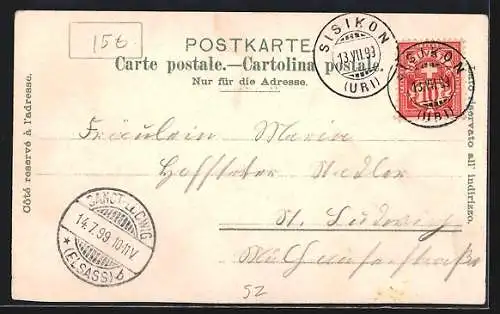 156
POSTKARTE
Carte postale.—Cartolina postale.
Nur für die Adresse.
Côté réservé à l'adresse.
Lato riservato all' indirizzo.
SISIKON
13.VII.99
(URI)
SISIKON
13.VII.99
(URI)
10
Fräulein Maria
Hoffstetter Stadler
St. Ludwig
Mülhauserstraße
SANCT-LUDWIG
14.7.99 10-11V.
* (ELSASS) b
52